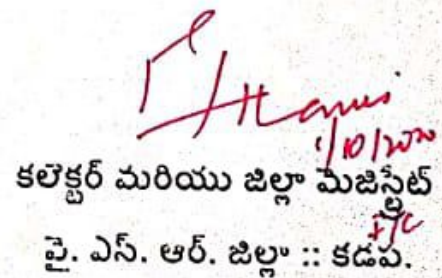 1/10/2020
కలెక్టర్ మరియు జిల్లా మేజిస్ట్రేట్
F/C
వై. ఎస్. ఆర్. జిల్లా :: కడప.